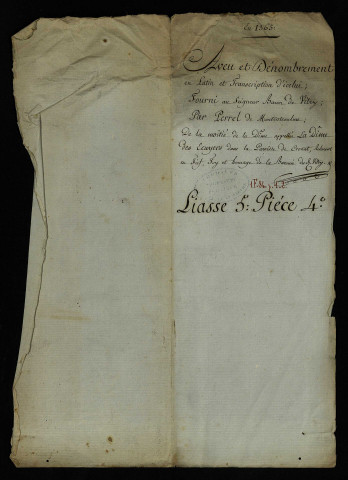 En 1363.
Aveu et Dénombrement
en Latin et Transcription d'icelui;
Fourni au Seigneur Baron de Vitry;
Par Perrel de
De la moitié de la Dîme appellée La Dîme
des Ecuyers dans la Paroisse de
en Fief, Foy et homage de la Baronie de Vitry
Liasse 5e Piéce 4e